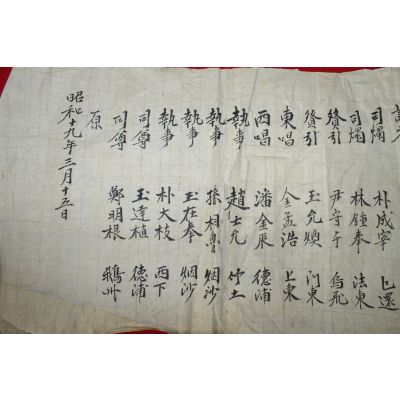 司燭 朴成寧
司燭 林鍾奉 法東
贊引 尹守
贊引 玉允煥 门東
東唱 金孟浩 上東
西唱 潘金辰 德浦
執事 趙士允 竹土
執事 孫相魯 烟沙
執事 玉在奉 烟沙
執事 朴大枝 西下
司尊 玉達植 德浦
司尊 鄭明根 鵝州
原
昭和十九年三月十五日